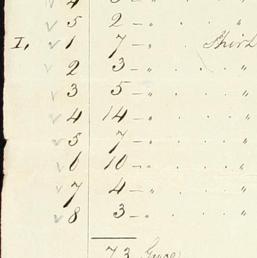 √ 5 2 - „ . . „
I, √ 1 7 - „ . Shirt
√ 2 3 - „ . . . „
√ 3 5 - „ . . . „
√ 4 14 - „ . . . „
√ 5 7 - „ . . . „
√ 6 10 - „ . . . „
√ 7 4 - „ . . . „
√ 8 3 - „ . . . „
73